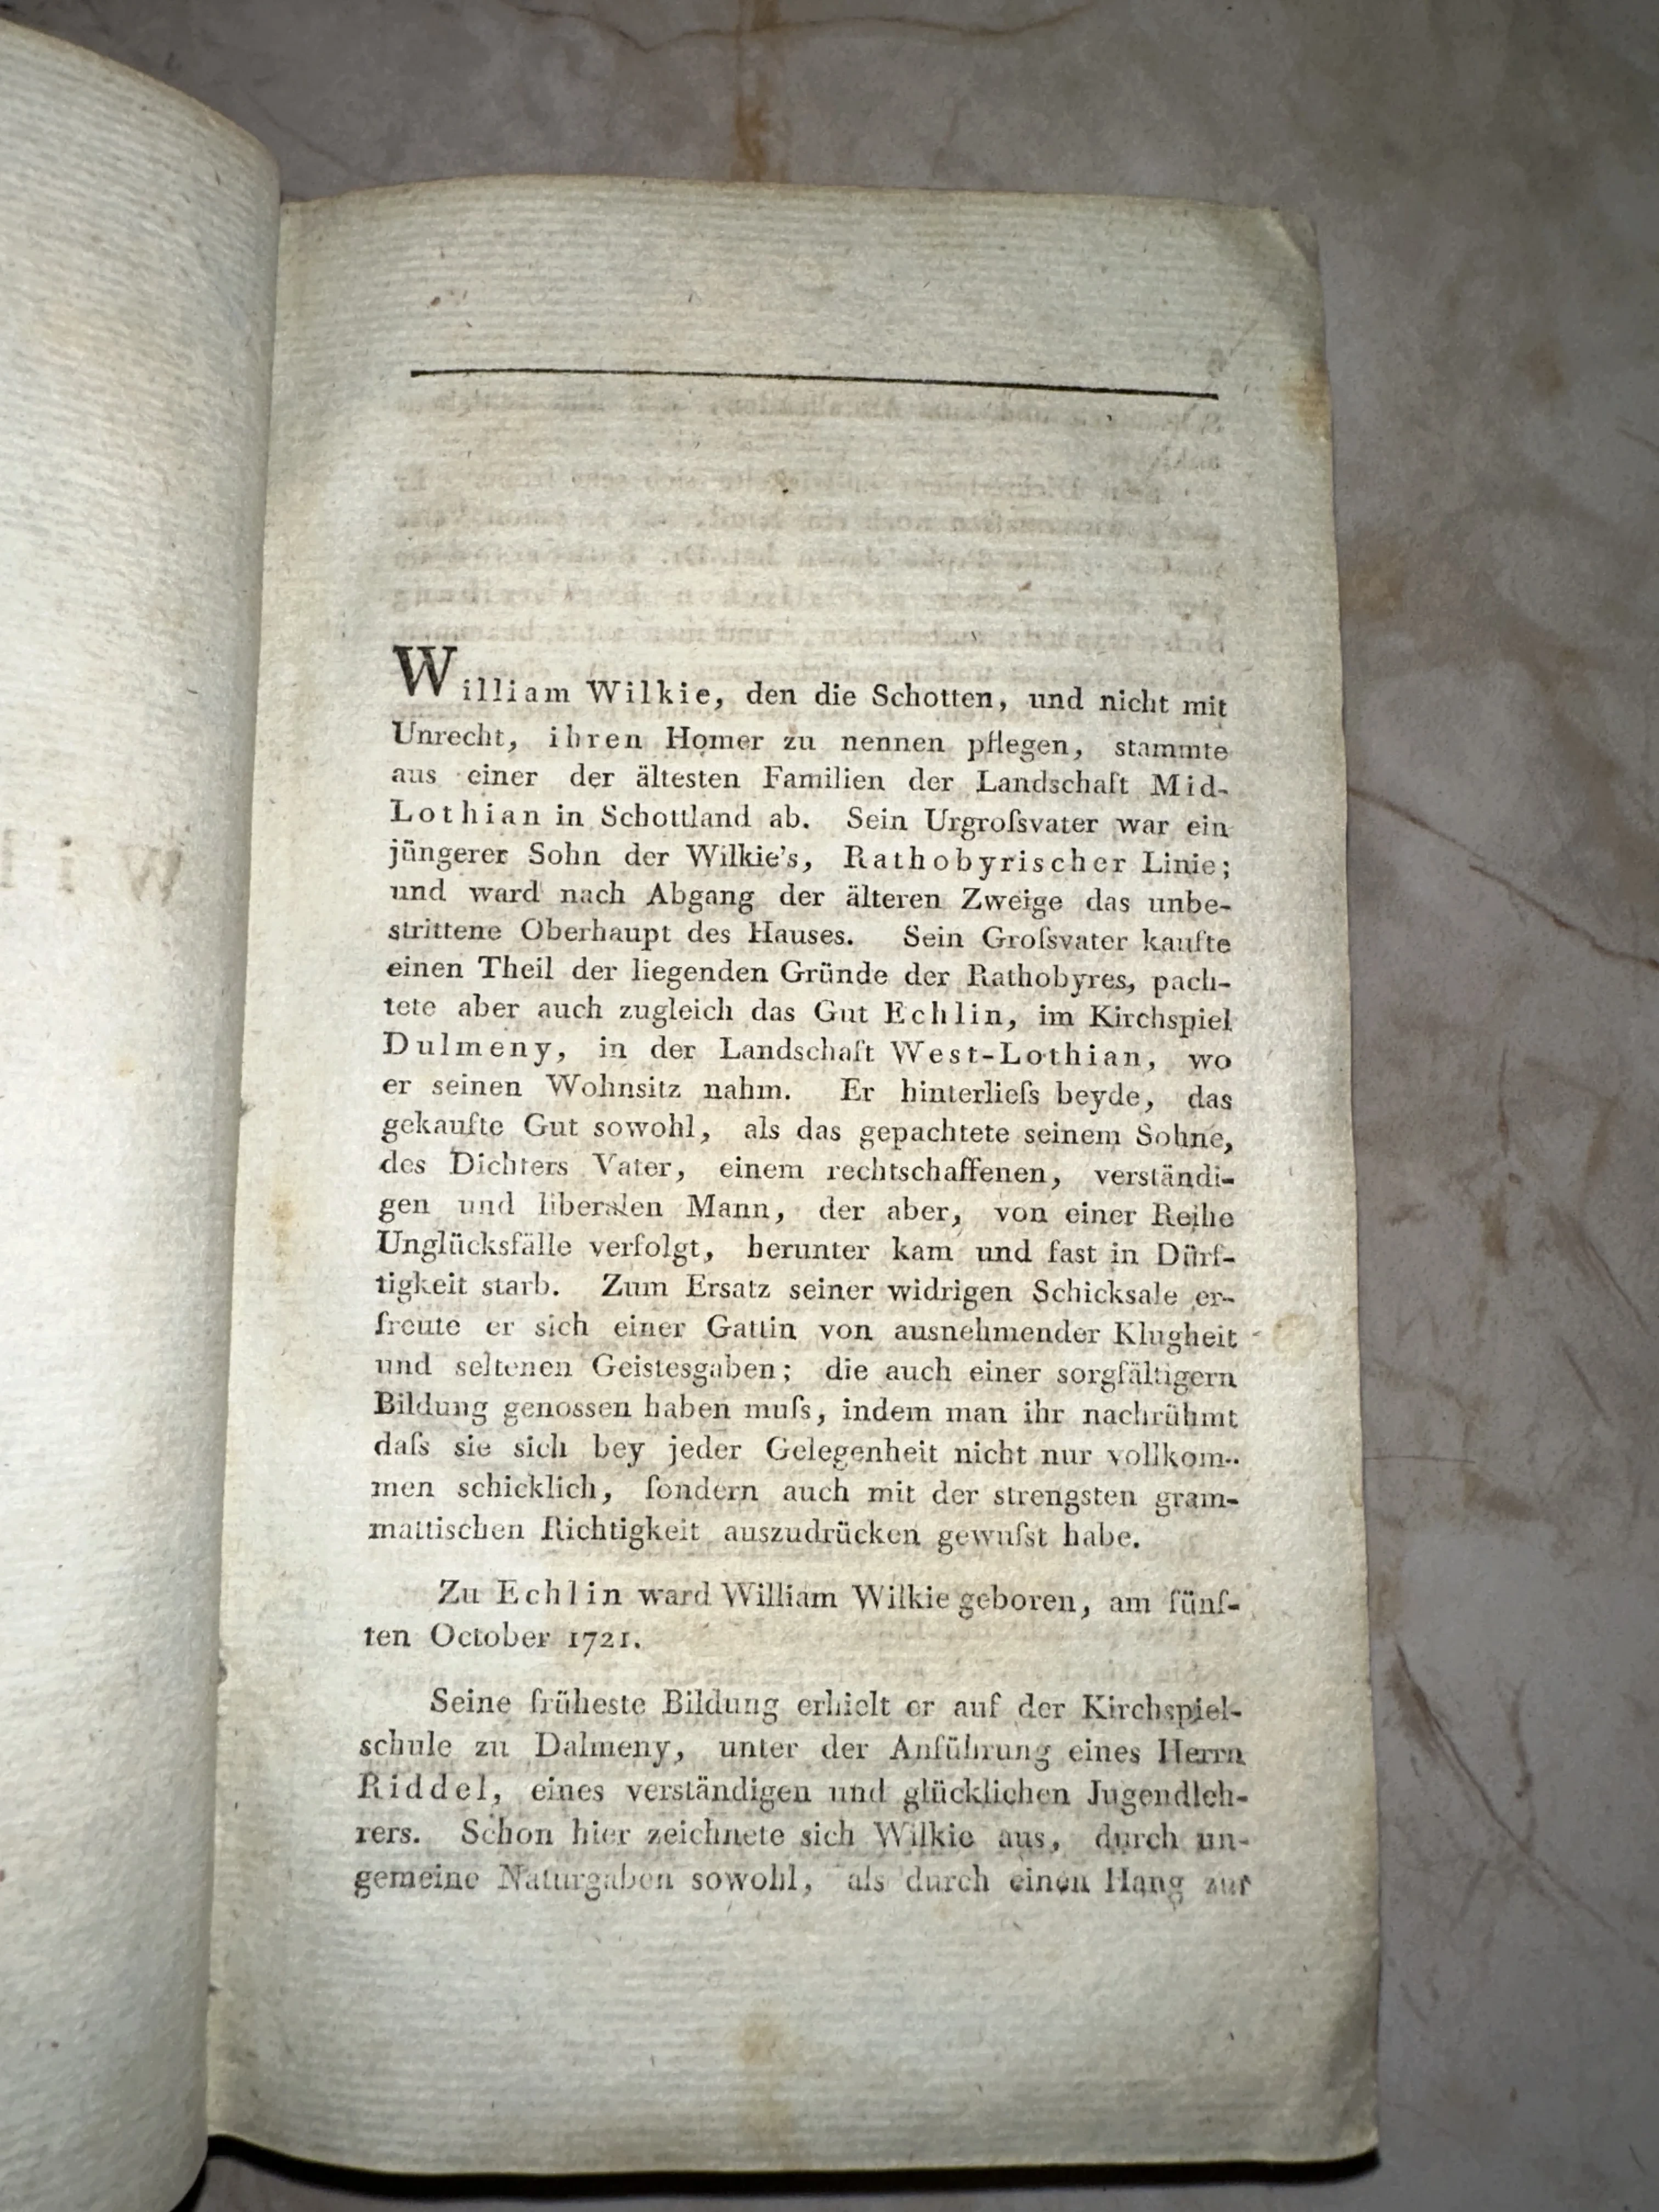 William Wilkie, den die Schotten, und nicht mit
Unrecht, ihren Homer zu nennen pflegen, stammte
aus einer der ältesten Familien der Landschaft Mid-
Lothian in Schottland ab. Sein Urgroſsvater war ein
jüngerer Sohn der Wilkie's, Rathobyrischer Linie;
und ward nach Abgang der älteren Zweige das unbe-
strittene Oberhaupt des Hauses. Sein Groſsvater kaufte
einen Theil der liegenden Gründe der Rathobyres, pach-
tete aber auch zugleich das Gut Echlin, im Kirchspiel
Dulmeny, in der Landschaft West-Lothian, wo
er seinen Wohnsitz nahm. Er hinterlieſs beyde, das
gekaufte Gut sowohl, als das gepachtete seinem Sohne,
des Dichters Vater, einem rechtschaffenen, verständi-
gen und liberalen Mann, der aber, von einer Reihe
Unglücksfälle verfolgt, herunter kam und fast in Dürf-
tigkeit starb. Zum Ersatz seiner widrigen Schicksale er-
freute er sich einer Gattin von ausnehmender Klugheit
und seltenen Geistesgaben; die auch einer sorgfältigern
Bildung genossen haben muſs, indem man ihr nachrühmt
daſs sie sich bey jeder Gelegenheit nicht nur vollkom-
men schicklich, ſondern auch mit der strengsten gram-
mattischen Richtigkeit auszudrücken gewuſst habe.
Zu Echlin ward William Wilkie geboren, am fünf-
ten October 1721.
Seine früheste Bildung erhielt er auf der Kirchspiel-
schule zu Dalmeny, unter der Anführung eines Herrn
Riddel, eines verständigen und glücklichen Jugendleh-
rers. Schon hier zeichnete sich Wilkie aus, durch un-
gemeine Naturgaben sowohl, als durch einen Hang zur